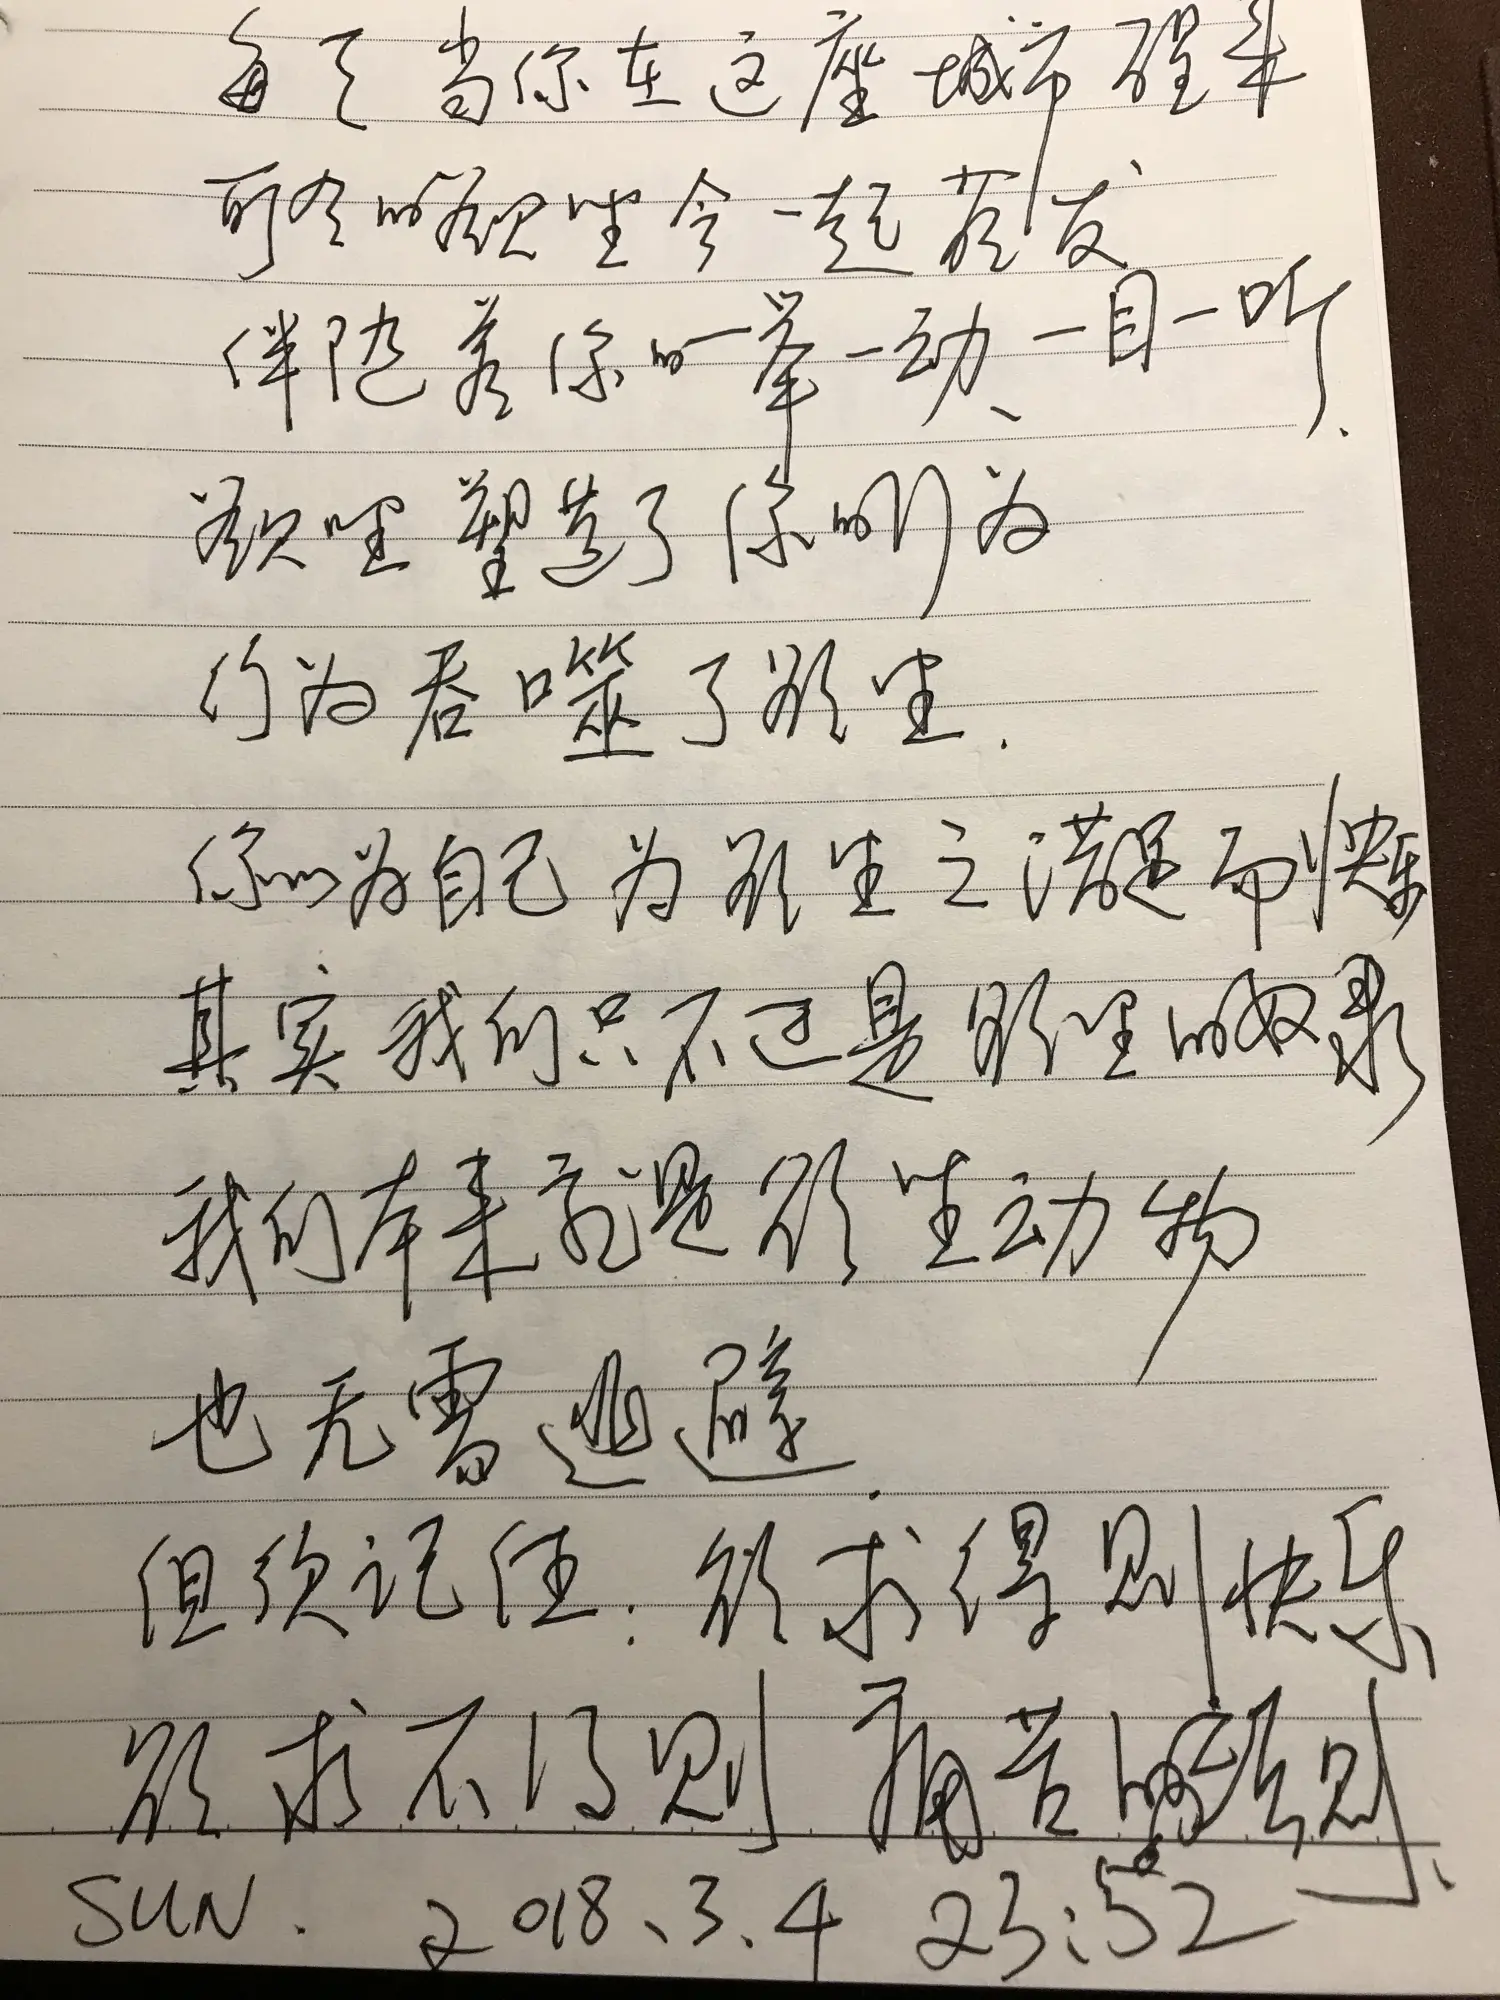 每天当你在这座城市醒来
所有的欲望会一起苏发
伴随着你的一举一动、一目一听.
欲望塑造了你的行为
行为吞噬了欲望.
你以为自己为欲望之满足而快乐
其实我们只不过是欲望的奴隶
我们本来就是欲望动物
也无需逃避.
但须记住: 欲求得则快乐、
欲求不得则痛苦的原则、
SUN. 2018、3.4 23:52